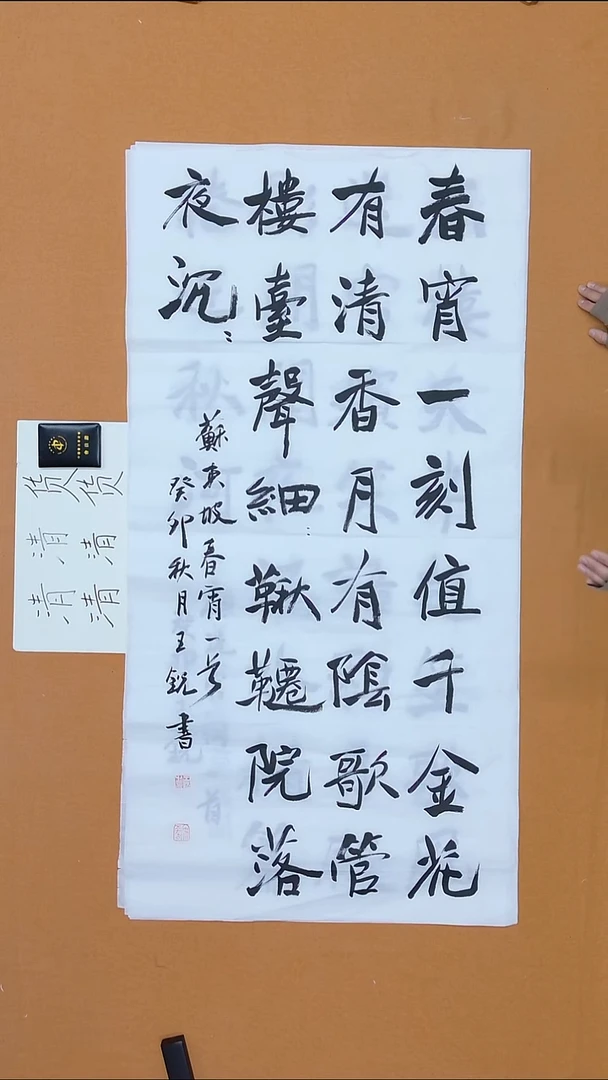 春宵一刻值千金花
有清香月有陰歌管
樓臺聲細〻鞦韆院落
夜沉〻
蘇東坡春宵一首
癸卯秋月王銳書
货货
清清
清清